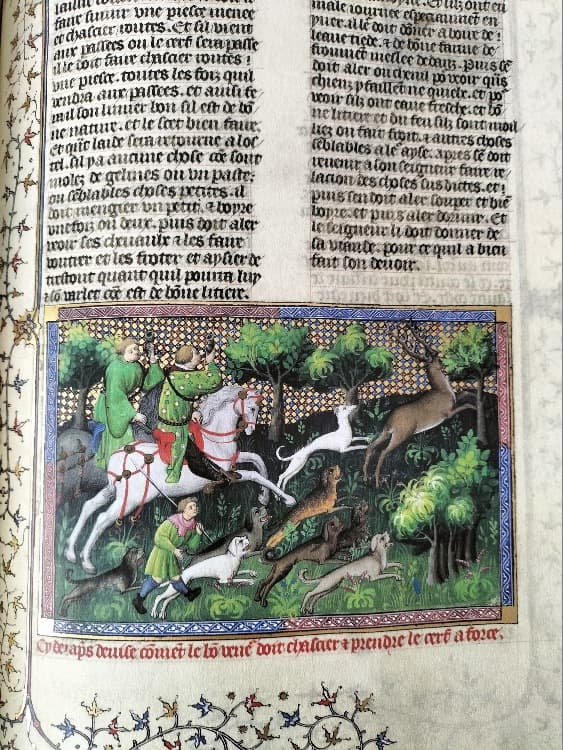 faire suivir vne piesce menee
et chascier routes. Et sil vient
aux passees ou le cerf sera passe
il le doit faire chascier routes
vne piesce. toutes les foiz quil
vendra aux passees. et aussi fe
mi son lunier bon sil est de bō
ne nature. et le scet bien faire.
Et quāt laide sera retourne a los
tel. sil ya aucune chose cōe sont
molez de gelines ou vn paste.
ou sēblables choses petites. il
doit mengier vn petit. ⁊ boyre
vnefoiz ou deux. puis doit aler
veoir ses cheuaulx ⁊ les faire
et les froter et aysier de
tiestout quant quil pourra luy
⁊ so varlet cōe est de bōne litiere.
male iournee especiaument en
yuer. alle doit dōner a boire de
leaue tiede. ⁊ de bōne farine de
froment meslee dedanz. Puis se
doit aler ou chenil po veoir quis
chienz ny faillet ne quiete. et po
veoir silz ont eaue fresche. et bō
ne litiere et du feu silz sont moil
liez ou fait froit. ⁊ autres choses
sēblables a le ayse. Apres se doit
reuenir a son seigneur faire re
lacion des choses susdictes. et
puis sen doit aler souper et biē
boyre. et puis aler dormir. Et
le seigneur li doit donner de
sa viande. pour ce quil a bien
fait son deuoir.
Cy deuaps deuise cōmēt le bō veneʳ doit chascier ⁊ prendre le cerf a force.